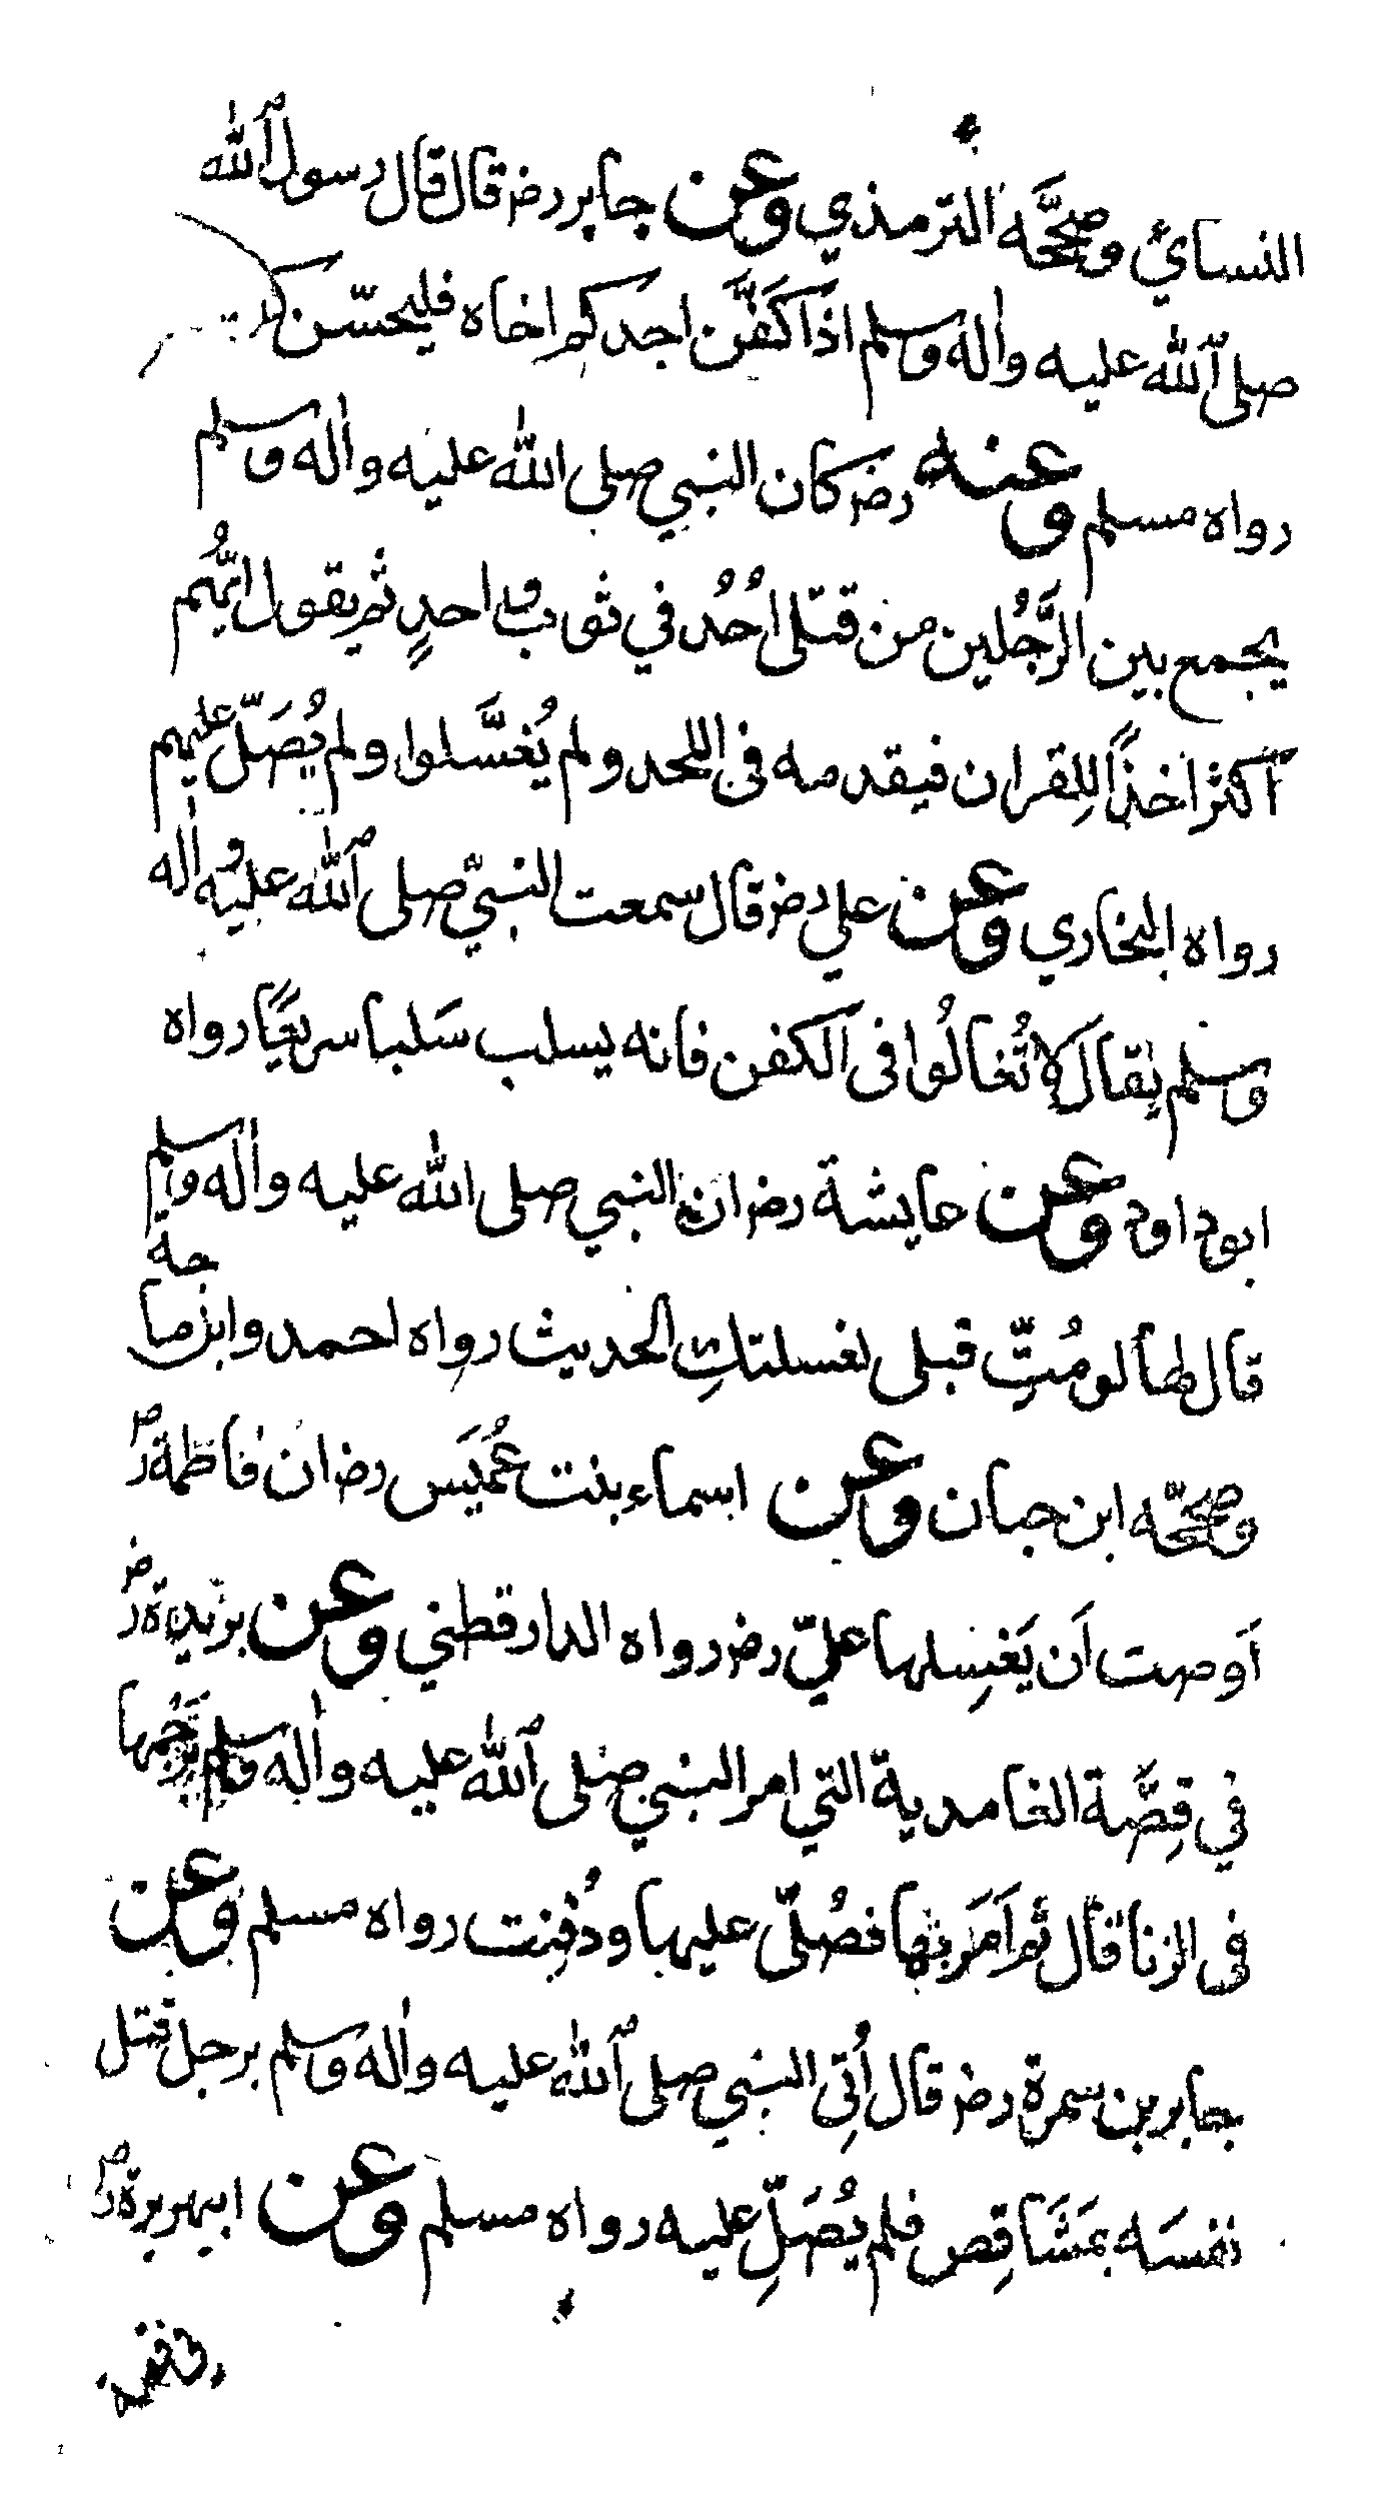 النسائي وصحَّحَه الترمذي وعن جابر رضـ قال قال رسول الله
صلى الله عليه واله وسلم اذا كَفَّن احدكم اخاه فليحسّن
رواه مسلم وعنه رضـ كان النبي صلى الله عليه واله وسلم
يجمع بين الرَّجُلين من قتلى اُحُد في ثوب واحدٍ ثم يقول ايُّهم
اكثر اخذاً لِلقران فيقدمه فى اللحد ولم يُغسَّلوا ولم يُصَلّ عليهم
رواه البخاري وعن علي رضـ قال سمعت النبيّ صلى الله عليه واله
وسلم يقال لا تُغالُوا فى الكفن فانه يسلب سَلبا سريعًا رواه
ابوداود وعن عايشة رضـ ان النبي صلى الله عليه واله وسلم
قال لها لو مُتِّ قبلى لغسلتكِ الحديث رواه احمد وابن ماجة
وصحّحه ابن حبان وعن اسماء بنت عُمَيَس رضـ ان فاطمة رضـ
اَوصت اَن يَغسِلها عليّ رضـ رواه الدارقطني وعن بريدة رضـ
في قِصَّة الغامدية التي امر النبي صلى الله عليه واله وسلم برَجُمها
فى الزنا قال ثم اَمَر بها فصُلّى عليها ودُفِنت رواه مسلم وعن
جابر بن سمرة رضـ قال اُتِى النبي صلى الله عليه واله وسلم برجل قتل
نفسَه بمَشَاقِص فلم يُصَلِّ عليه رواه مسلم وعن ابيهريرة رضـ